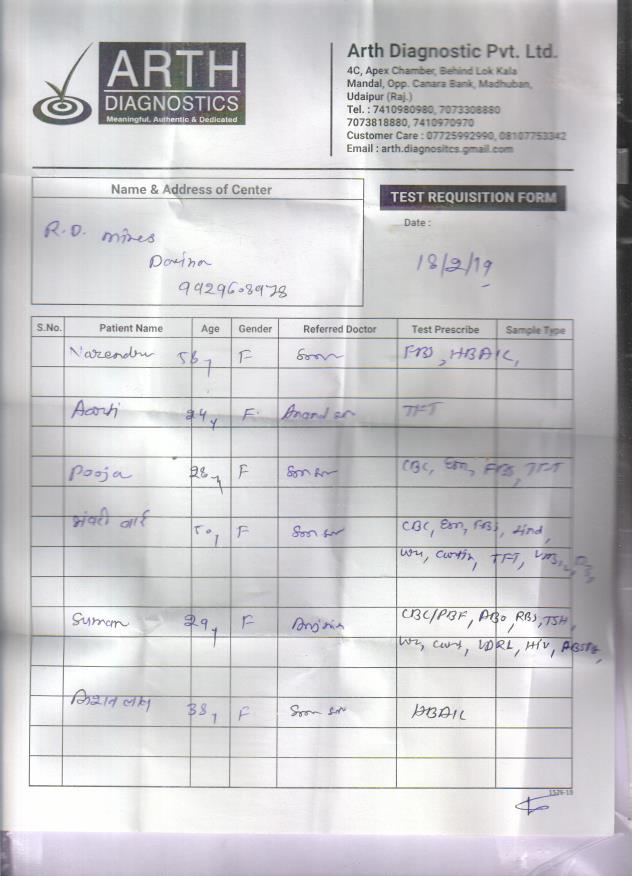 ARTH
DIAGNOSTICS
Meaningful, Authentic & Dedicated
Arth Diagnostic Pvt. Ltd.
4C, Apex Chamber, Behind Lok Kala
Mandal, Opp. Canara Bank, Madhuban,
Udaipur (Raj.)
Tel. : 7410980980, 7073308880
7073818880, 7410970970
Customer Care : 07725992990, 08107753342
Email : arth.diagnositcs.gmail.com
Name & Address of Center
TEST REQUISITION FORM
Date :
R.D. mines
18/2/19
9929608978
S.No. Patient Name Age Gender Referred Doctor Test Prescribe Sample Type
Narendru 58y F FBS, HBAIC,
Aarti 24y F. Anand sir TFT
Pooja 28y F CBC, Esr, FBS, TFT
भंवरी बाई 50y F CBC, Esr, FBS,
TFT,
Suman 29y F CBC/PBF, ABO, RBS, TSH,
VDRL, HIV,
38y F HBAIC
1526-18